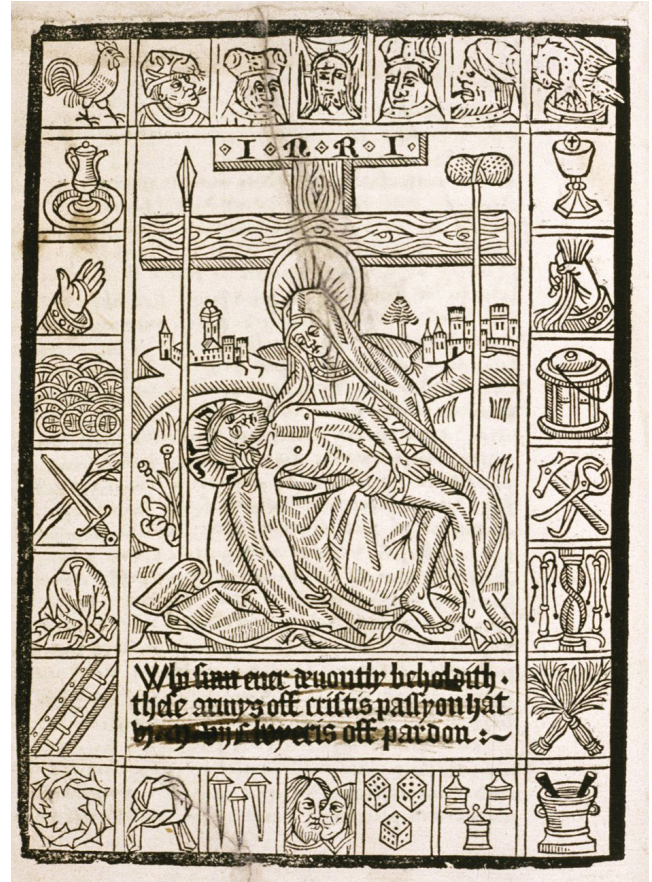 I · N · R · I
Who sum euer deuoutly beholdith ·
these armys off cristis passyon hat
yeris off pardon :~